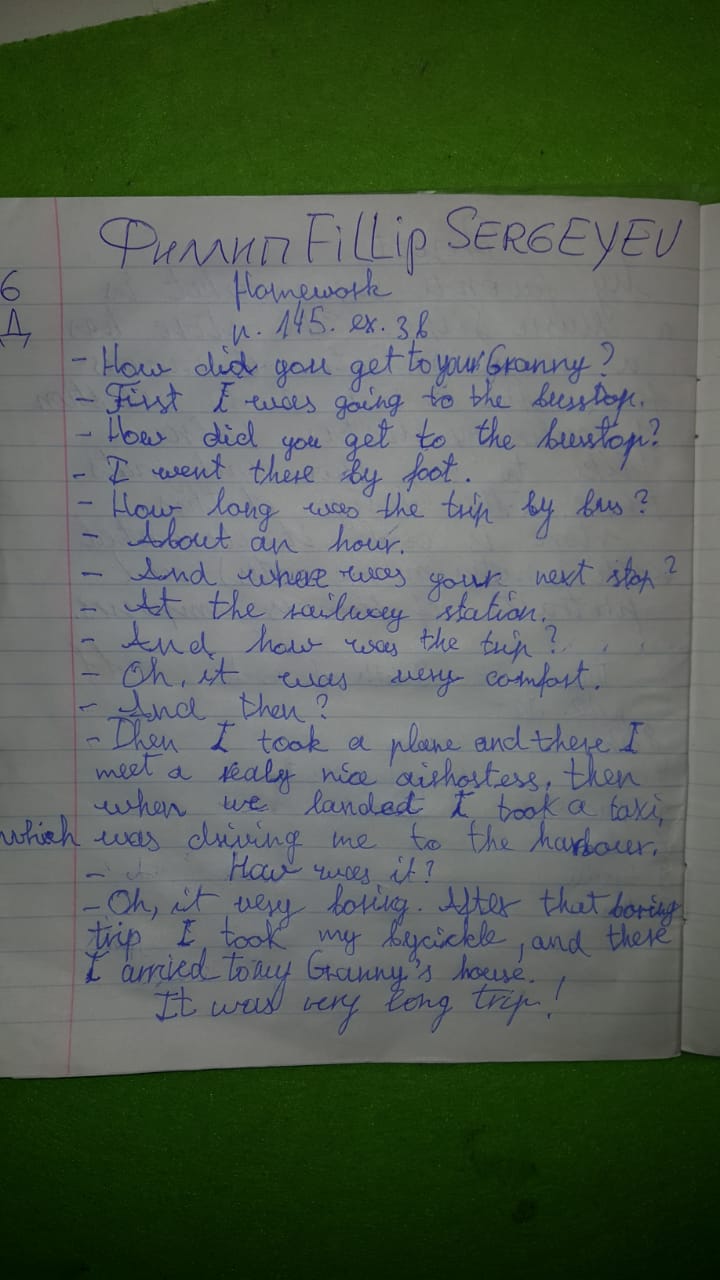 Филлип Fillip SERGEYEV
6 Homework
Д п. 145. ex. 3b
- How did you get to your Granny?
- First I was going to the busstop.
- How did you get to the busstop?
- I went there by foot.
- How long was the trip by bus?
- About an hour.
- And where was your next stop?
- At the railway station.
- And how was the trip?
- Oh, it was very comfort.
- And then?
- Then I took a plane and there I
meet a realy nice airhostess, then
when we landed I took a taxi,
which was driving me to the harbour.
- How was it?
- Oh, it very boring. After that boring
trip I took my bycickle, and there
I arried to my Granny's house.
It was very long trip!